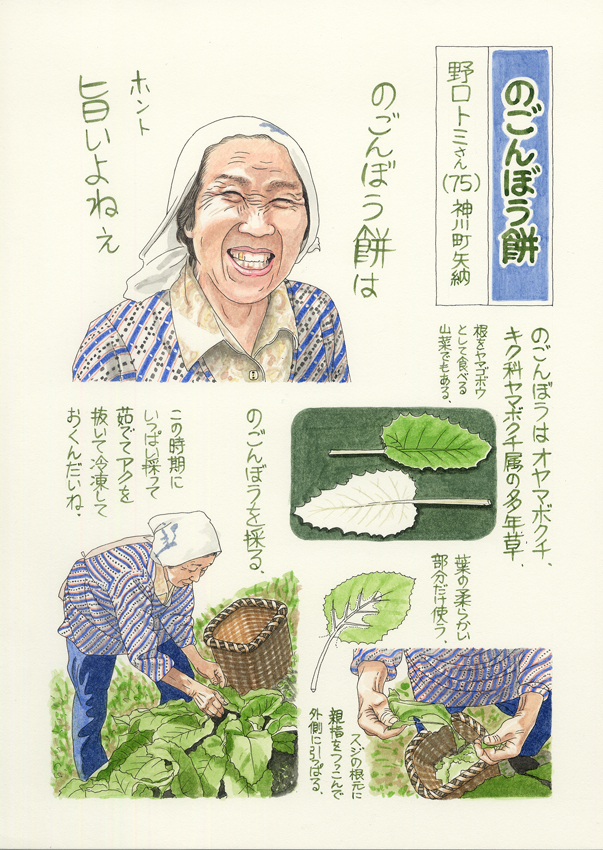 のごんぼう餅
野口トミさん(75)神川町矢納
のごんぼう餅は
ホント
旨いよねえ
のごんぼうはオヤマボクチ、
キク科ヤマボクチ属の多年草。
根をヤマゴボウ
として食べる
山菜でもある。
のごんぼうを採る。
この時期に
いっぱい採って
茹でてアクを
抜いて冷凍して
おくんだいね。
葉の柔らかい
部分だけ使う。
スジの根元に
親指をつっこんで
外側に引っぱる。